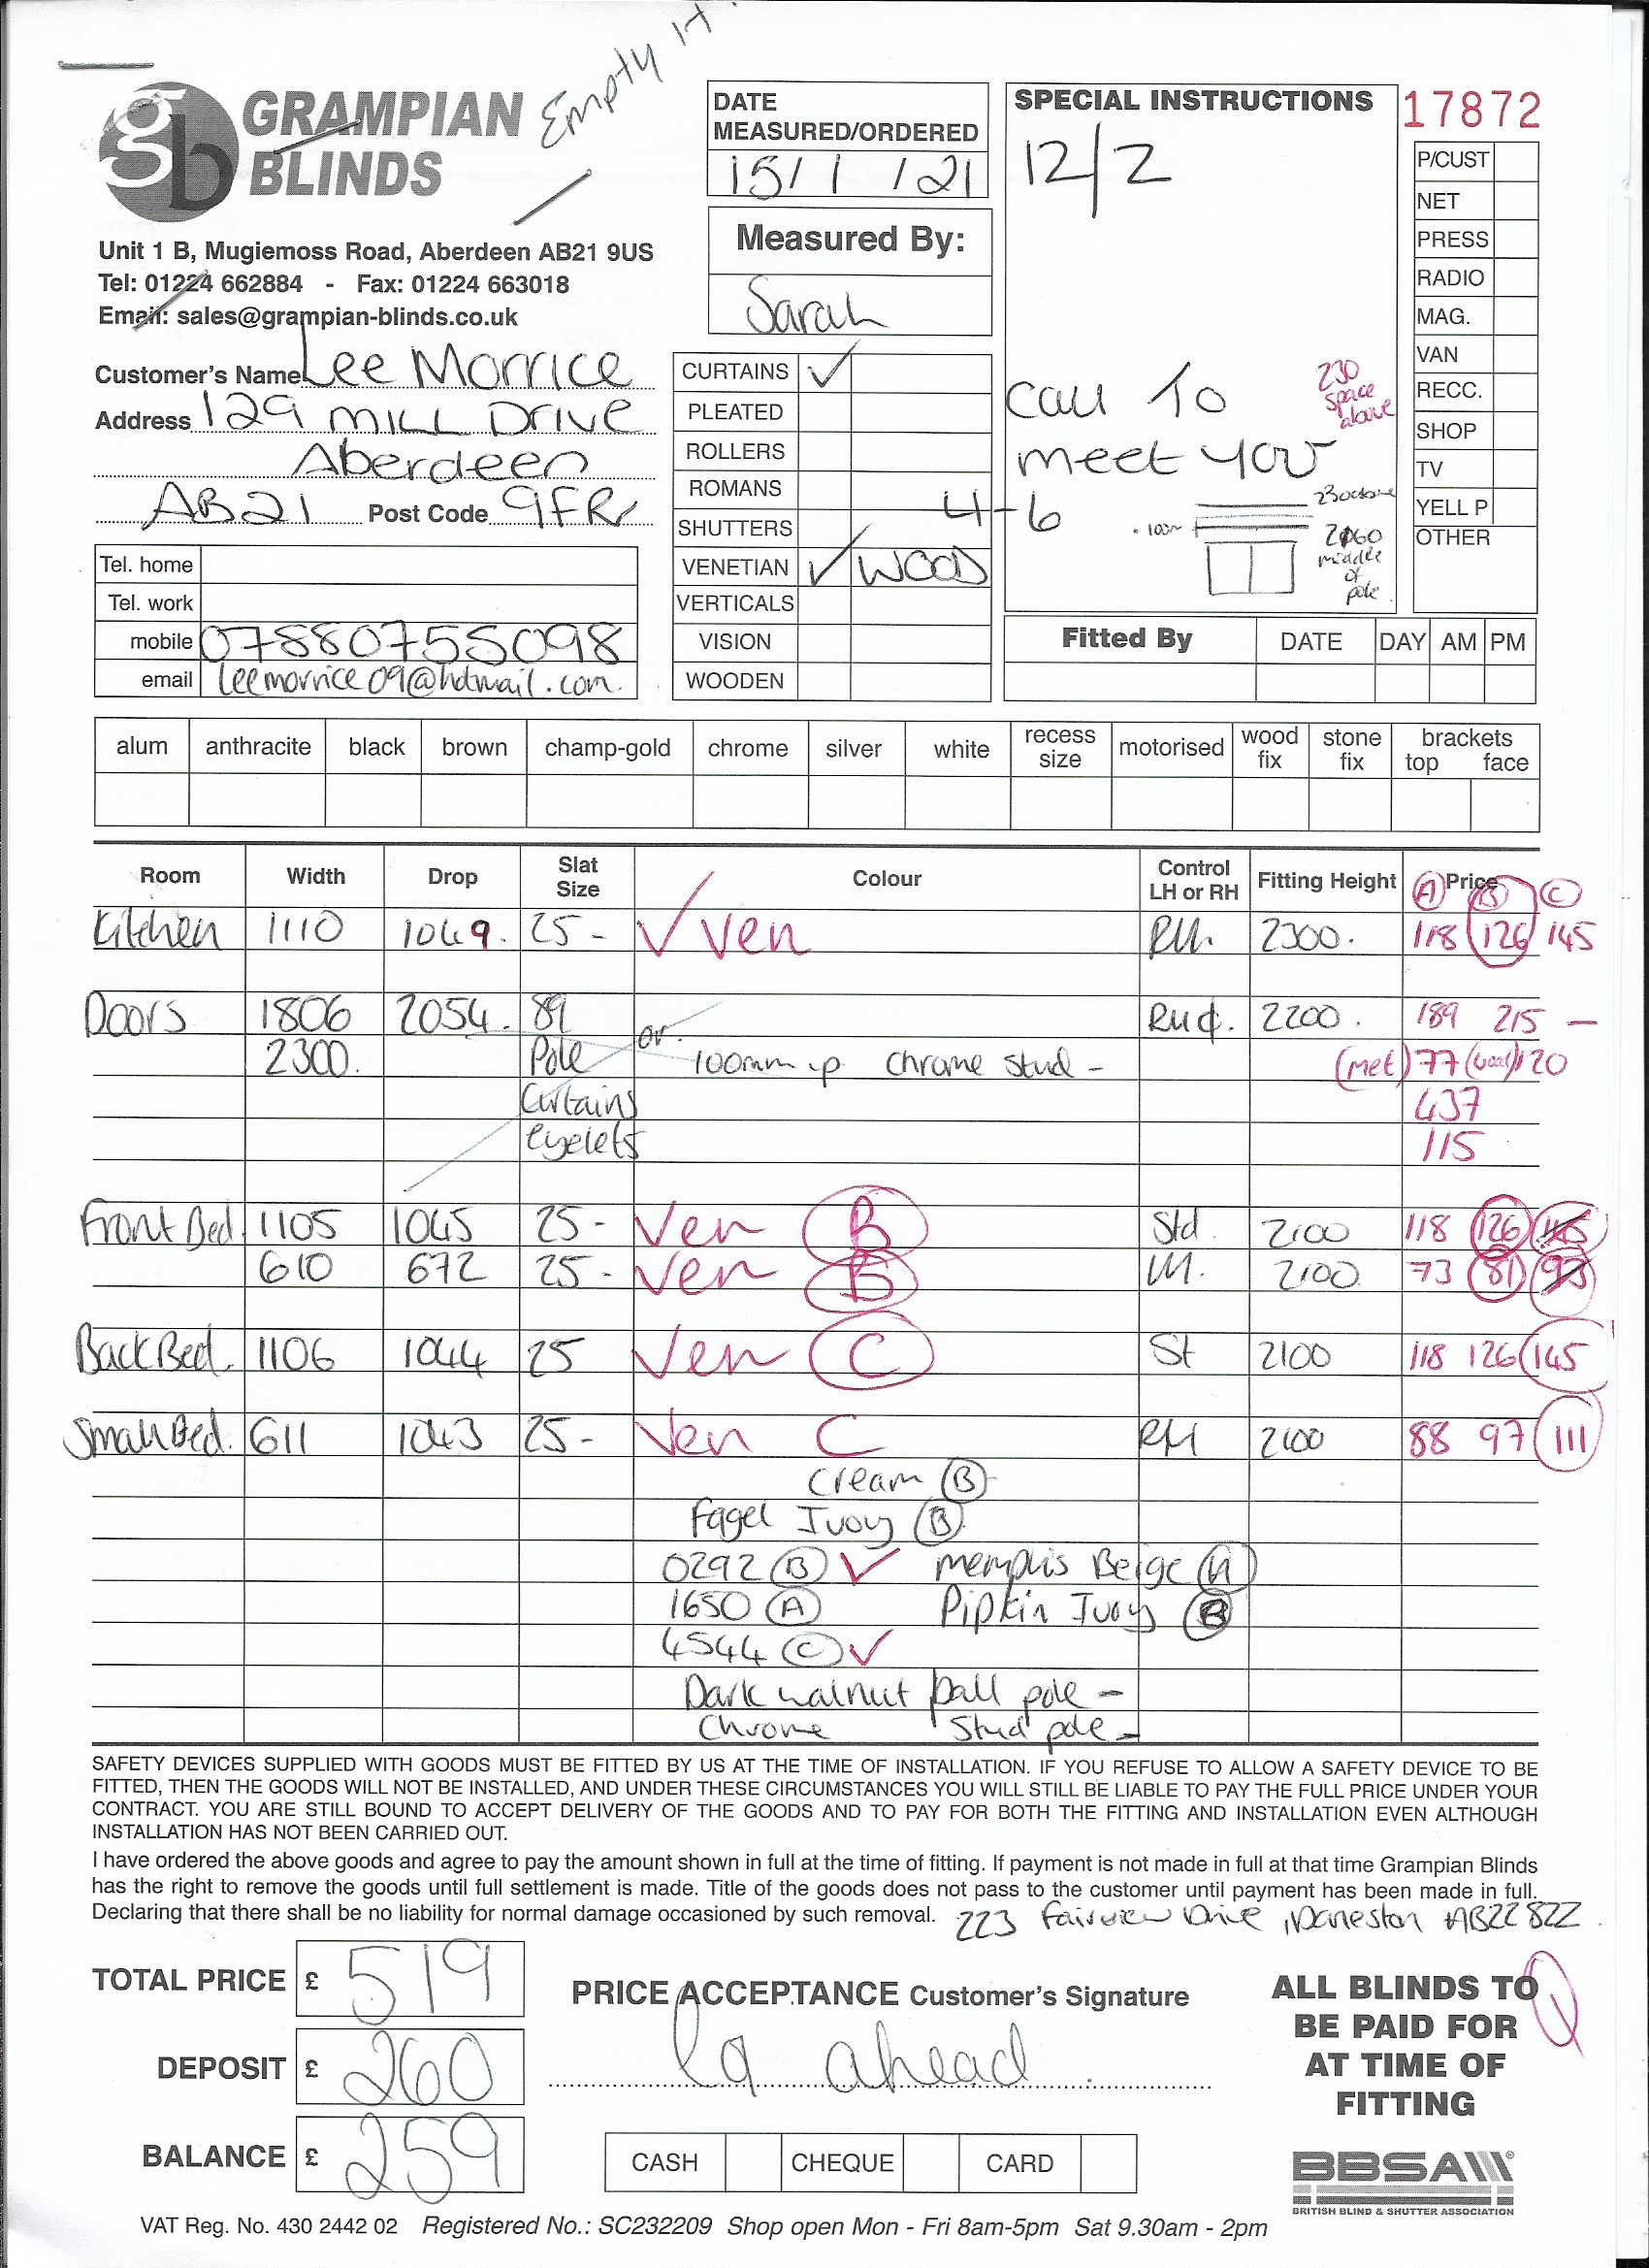 Empty it.
GRAMPIAN
BLINDS
Unit 1 B, Mugiemoss Road, Aberdeen AB21 9US
Tel: 01224 662884 - Fax: 01224 663018
Email: sales@grampian-blinds.co.uk
Customer's Name Lee Morrice
Address 129 Mill Drive
Aberdeen
AB21 Post Code 9FR
Tel. home
Tel. work
mobile 07880755098
email leemorrice09@hotmail.com.
DATE
MEASURED/ORDERED
15/1/21
Measured By:
Sarah
CURTAINS ✓
PLEATED
ROLLERS
ROMANS
SHUTTERS
VENETIAN ✓ WOOD
VERTICALS
VISION
WOODEN
SPECIAL INSTRUCTIONS
12/2
230
space
above
call To
meet you
4-6
230 above
100m
2160
middle
of
pole.
17872
P/CUST
NET
PRESS
RADIO
MAG.
VAN
RECC.
SHOP
TV
YELL P
OTHER
Fitted By DATE DAY AM PM
alum anthracite black brown champ-gold chrome silver white recess size motorised wood fix stone fix brackets top face
Room Width Drop Slat Size Colour Control LH or RH Fitting Height Price A B C
Kitchen 1110 1049. 25 - ✓ Ven RH. 2300. 118 126 145
Doors 1806 2054. 89 2200. 189 215 -
2300. Pole or 100mm up Chrome Stud - (met) 77 (wood) 120
Curtains 437
Eyelets 115
Front Bed. 1105 1045 25 - Ven B Std. 2100 118 126 145
610 672 25 - Ven B LH. 2100 73 81 93
Back Bed. 1106 1044 25 Ven C St 2100 118 126 145
Small Bed. 611 1043 25 - Ven C RH 2100 88 97 111
Cream B
Fagel Ivory B
0292 B ✓ Memphis Beige A
1650 A Pipkin Ivory B
4544 C ✓
Dark walnut ball pole -
Chrome Stud pole -
SAFETY DEVICES SUPPLIED WITH GOODS MUST BE FITTED BY US AT THE TIME OF INSTALLATION. IF YOU REFUSE TO ALLOW A SAFETY DEVICE TO BE
FITTED, THEN THE GOODS WILL NOT BE INSTALLED, AND UNDER THESE CIRCUMSTANCES YOU WILL STILL BE LIABLE TO PAY THE FULL PRICE UNDER YOUR
CONTRACT. YOU ARE STILL BOUND TO ACCEPT DELIVERY OF THE GOODS AND TO PAY FOR BOTH THE FITTING AND INSTALLATION EVEN ALTHOUGH
INSTALLATION HAS NOT BEEN CARRIED OUT.
I have ordered the above goods and agree to pay the amount shown in full at the time of fitting. If payment is not made in full at that time Grampian Blinds
has the right to remove the goods until full settlement is made. Title of the goods does not pass to the customer until payment has been made in full.
Declaring that there shall be no liability for normal damage occasioned by such removal. 223 Fairview Drive, Danestone AB22 8ZZ.
TOTAL PRICE £ 519
DEPOSIT £ 260
BALANCE £ 259
PRICE ACCEPTANCE Customer's Signature
ahead
CASH CHEQUE CARD
ALL BLINDS TO
BE PAID FOR
AT TIME OF
FITTING
BBSA
BRITISH BLIND & SHUTTER ASSOCIATION
VAT Reg. No. 430 2442 02 Registered No.: SC232209 Shop open Mon - Fri 8am-5pm Sat 9.30am - 2pm